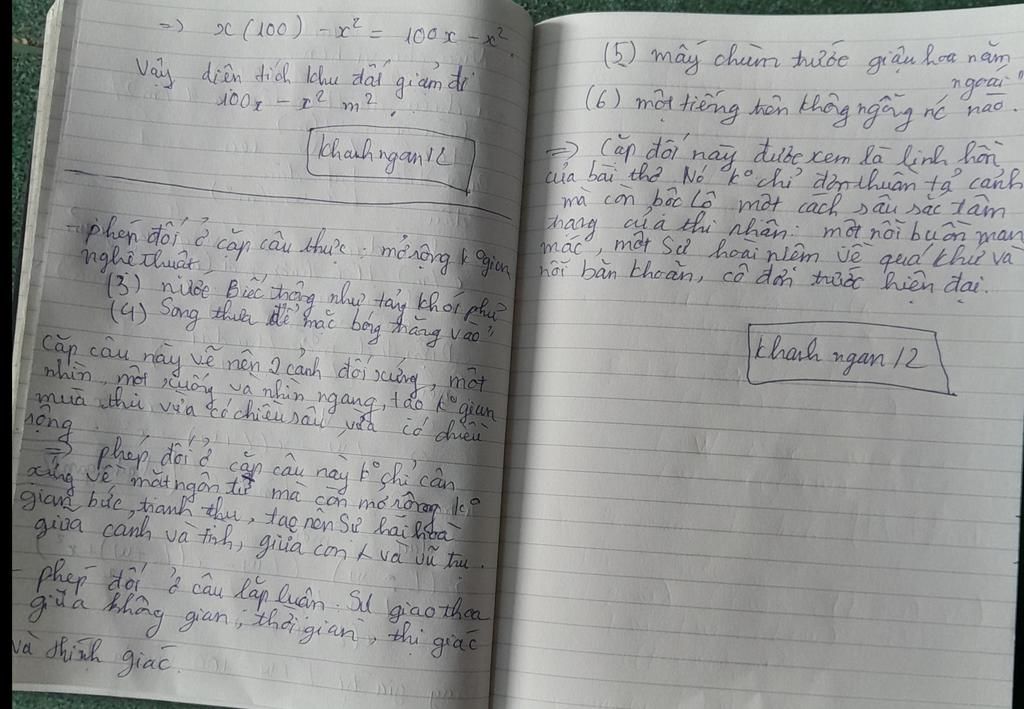 => x(100) - x² = 100x - x².
Vậy diện tích khu đất giảm đi
100x - x² m².
khanhngan12
- phép đối ở cặp câu thực: mở rộng k° gian
nghệ thuật.
(3) nước Biếc trông như tầng khói phủ
(4) Song thưa để mặc bóng trăng vào"
Cặp câu này vẽ nên 2 cảnh đối xứng, một
nhìn một xuống và nhìn ngang, tạo k° gian
mùa thu vừa có chiều sâu, vừa có chiều
rộng.
=> phép đối ở cặp câu này k° chỉ cân
xứng về mặt ngôn từ mà còn mở rộng k°
gian bức tranh thu, tạo nên sự hài hòa
giữa cảnh và tình, giữa con và vũ trụ.
- phép đối ở câu lặp luận: Sự giao thoa
giữa không gian, thời gian, thị giác
và thính giác.
(5) mấy chùm trước giậu hoa năm
ngoái"
(6) một tiếng trên không ngỗng nc nào.
=> Cặp đối này được xem là linh hồn
của bài thơ Nó k° chỉ đơn thuần tả cảnh
mà còn bộc lộ một cách sâu sắc tâm
trạng của thi nhân: một nỗi buồn man
mác, một sự hoài niệm về quá khứ và
nỗi băn khoăn, cô đơn trước hiện đại.
khanh ngan 12